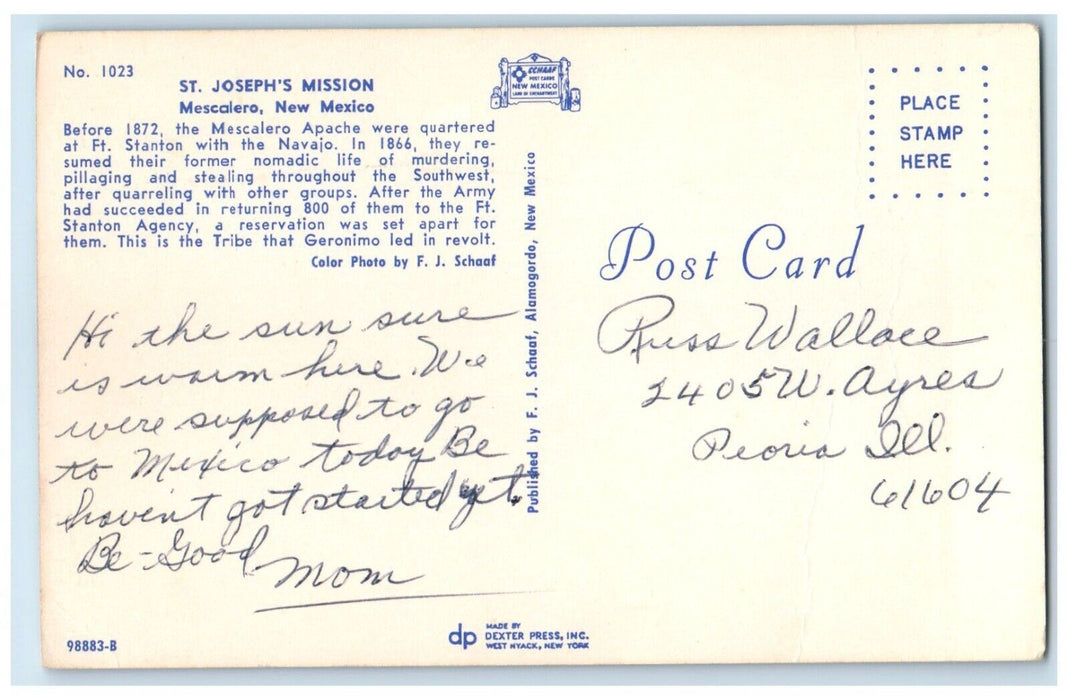 No. 1023
ST. JOSEPH'S MISSION
Mescalero, New Mexico
Before 1872, the Mescalero Apache were quartered
at Ft. Stanton with the Navajo. In 1866, they re-
sumed their former nomadic life of murdering,
pillaging and stealing throughout the Southwest,
after quarreling with other groups. After the Army
had succeeded in returning 800 of them to the Ft.
Stanton Agency, a reservation was set apart for
them. This is the Tribe that Geronimo led in revolt.
Color Photo by F. J. Schaaf
Hi the sun sure
is warm here. We
were supposed to go
to Mexico today Be
haven't got started yet.
Be-Good
Mom
98883-B
SCHAAF
POST CARDS
NEW MEXICO
LAND OF ENCHANTMENT
Published by F. J. Schaaf, Alamogordo, New Mexico
dp
MADE BY
DEXTER PRESS, INC.
WEST NYACK, NEW YORK
PLACE
STAMP
HERE
Post Card
Russ Wallace
2405 W. Ayres
Peoria Ill.
61604